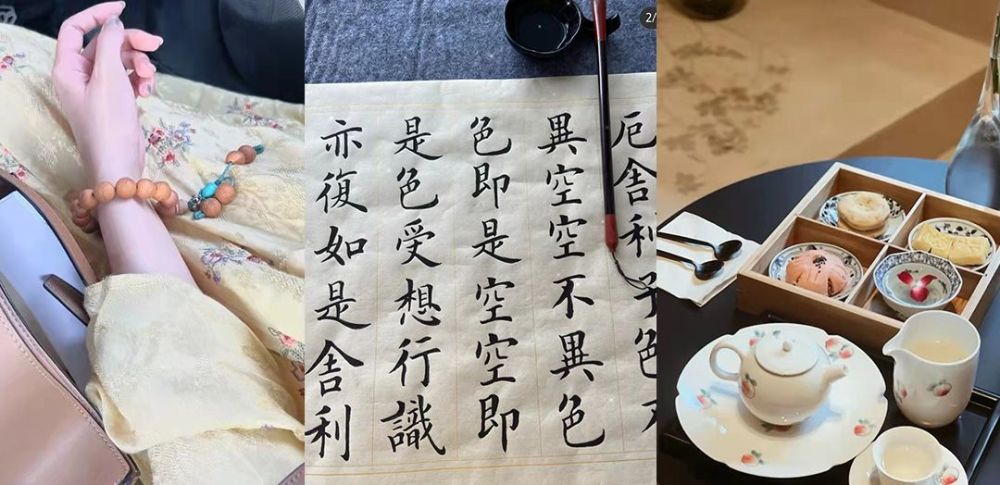 2/
厄舍利子色不
異空空不異色
色即是空空即
是色受想行識
亦復如是舍利